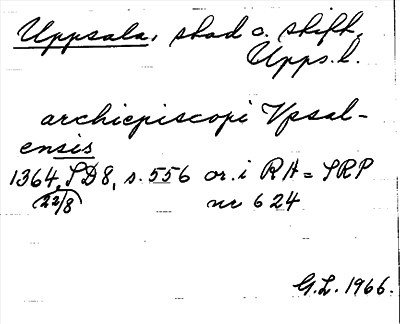 Uppsala, stad o. stift,
Upps. l.
archiepiscopi Vpsal-
ensis
1364, SD8, s. 556 or. i RA = SRP
(22/8) nr 624
G.L. 1966.